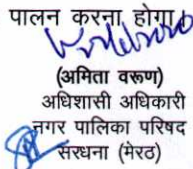 पालन करना होगा।
(अमिता वरूण)
अधिशासी अधिकारी
नगर पालिका परिषद
सरधना (मेरठ)